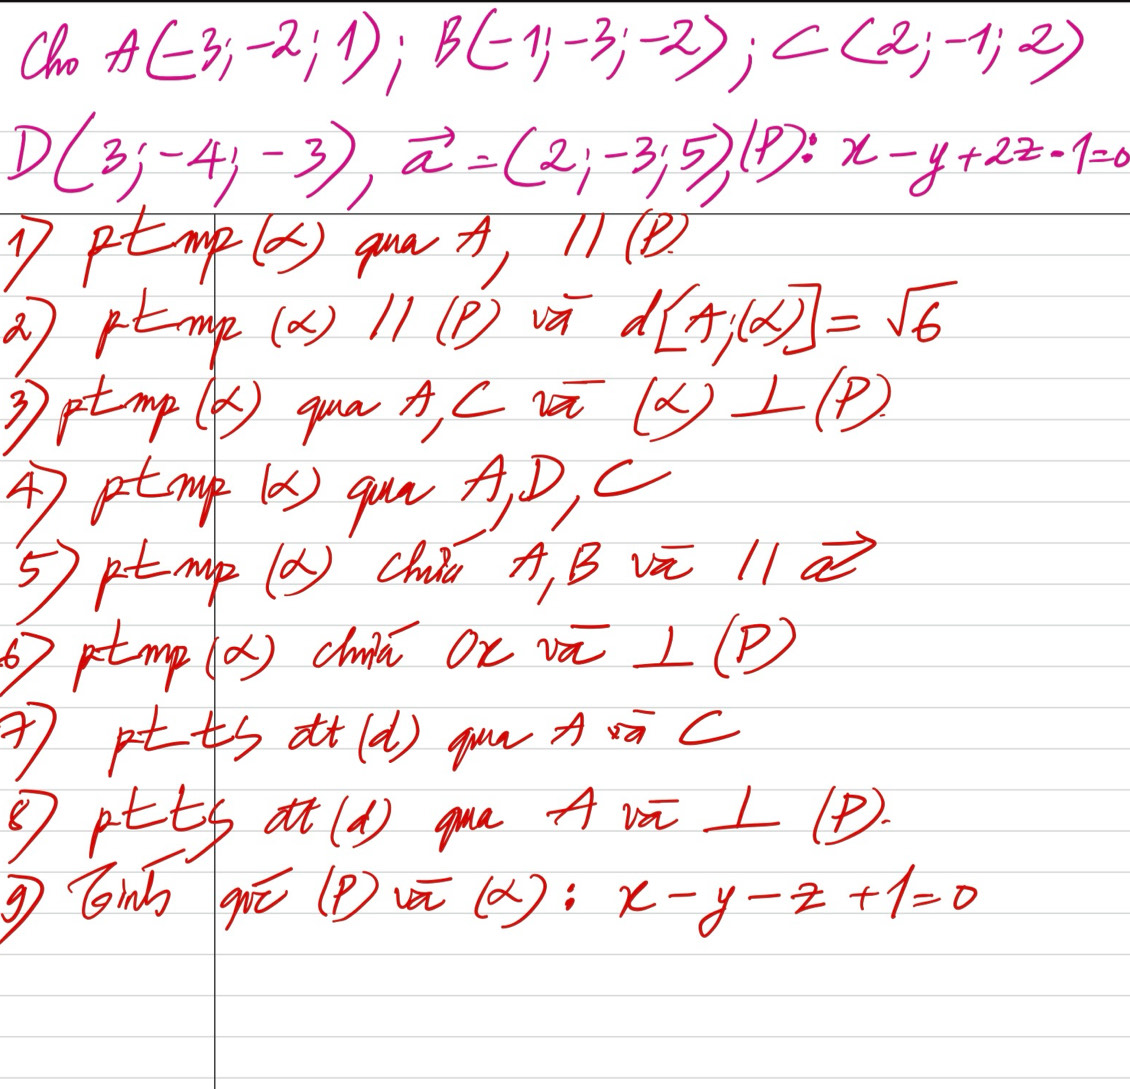 Cho A(-3; -2; 1); B(-1; -3; -2); C(2; -1; 2)
D(3; -4; -3), a⃗ = (2; -3; 5) (P): x - y + 2z - 1 = 0
1) pt mp (α) qua A, // (P).
2) pt mp (α) // (P) và d[A;(α)] = √6
3) pt mp (α) qua A, C và (α) ⊥ (P).
4) pt mp (α) qua A, D, C
5) pt mp (α) chứa A, B và // a⃗
6) pt mp (α) chứa Ox và ⊥ (P)
7) pt ts đt (d) qua A và C
8) pt ts đt (d) qua A và ⊥ (P).
9) Tính góc (P) và (α): x - y - z + 1 = 0